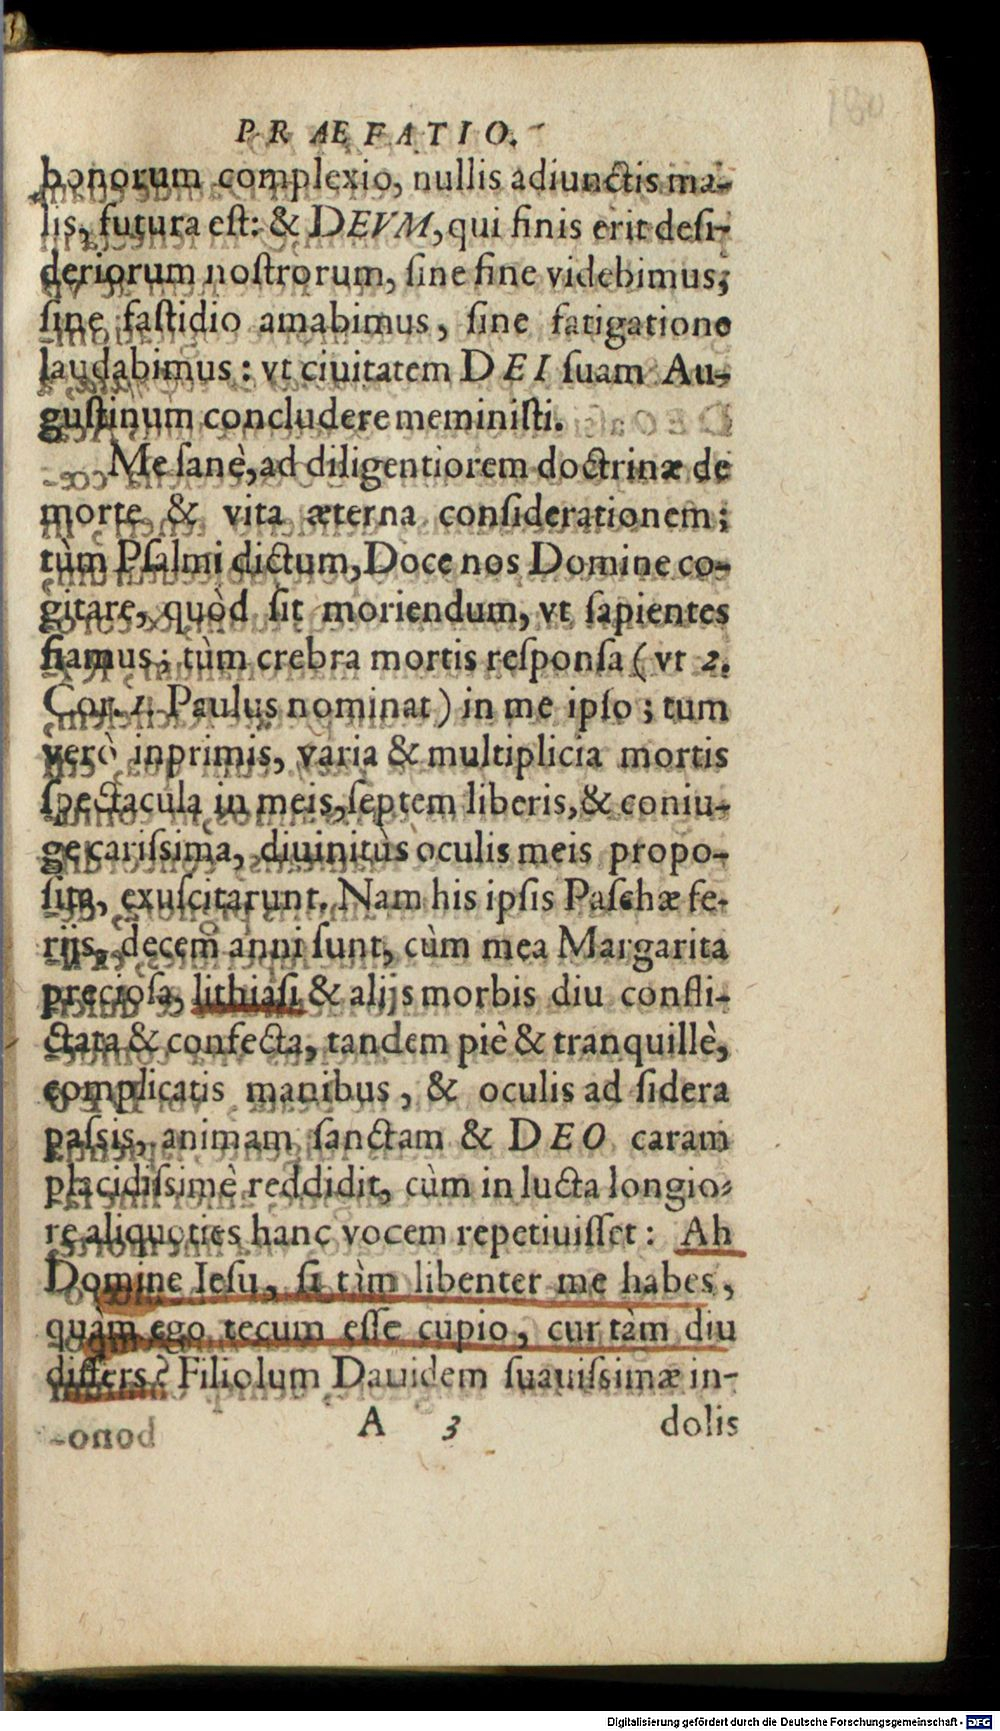 PRAEFATIO.
bonorum complexio, nullis adiunctis ma-
lis, futura eſt: & DEVM, qui finis erit deſi-
deriorum noſtrorum, ſine fine videbimus;
ſine faſtidio amabimus, ſine fatigatione
laudabimus: vt ciuitatem DEI ſuam Au-
guſtinum concludere meminiſti.
Me ſanè, ad diligentiorem doctrinæ de
morte & vita æterna conſiderationem;
tùm Pſalmi dictum, Doce nos Domine co-
gitare, quòd ſit moriendum, vt ſapientes
fiamus; tùm crebra mortis reſponſa (vt 2.
Cor. 1. Paulus nominat) in me ipſo; tum
verò inprimis, varia & multiplicia mortis
ſpectacula in meis, ſeptem liberis, & coniu-
ge cariſsima, diuinitùs oculis meis propo-
ſita, exuſcitarunt. Nam his ipſis Paſchæ fe-
rijs, decem anni ſunt, cùm mea Margarita
precioſa, lithiaſi & alijs morbis diu confli-
ctata & confecta, tandem piè & tranquillè,
complicatis manibus, & oculis ad ſidera
paſsis, animam ſanctam & DEO caram
placidiſsimè reddidit, cùm in lucta longio-
re aliquoties hanc vocem repetiuiſſet: Ah
Domine Ieſu, ſi tàm libenter me habes,
quàm ego tecum eſſe cupio, cur tàm diu
differs? Filiolum Dauidem ſuauiſsimæ in-
A 3 dolis
180
Digitalisierung gefördert durch die Deutsche Forschungsgemeinschaft - DFG